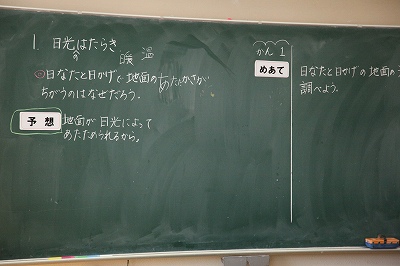 1 日光のはたらき
暖 温
日なたと日かげで地面のあたたかさが
ちがうのはなぜだろう。
予想
地面が日光によって
あたためられるから。
かん 1
めあて
日なたと日かげの地面の
調べよう。